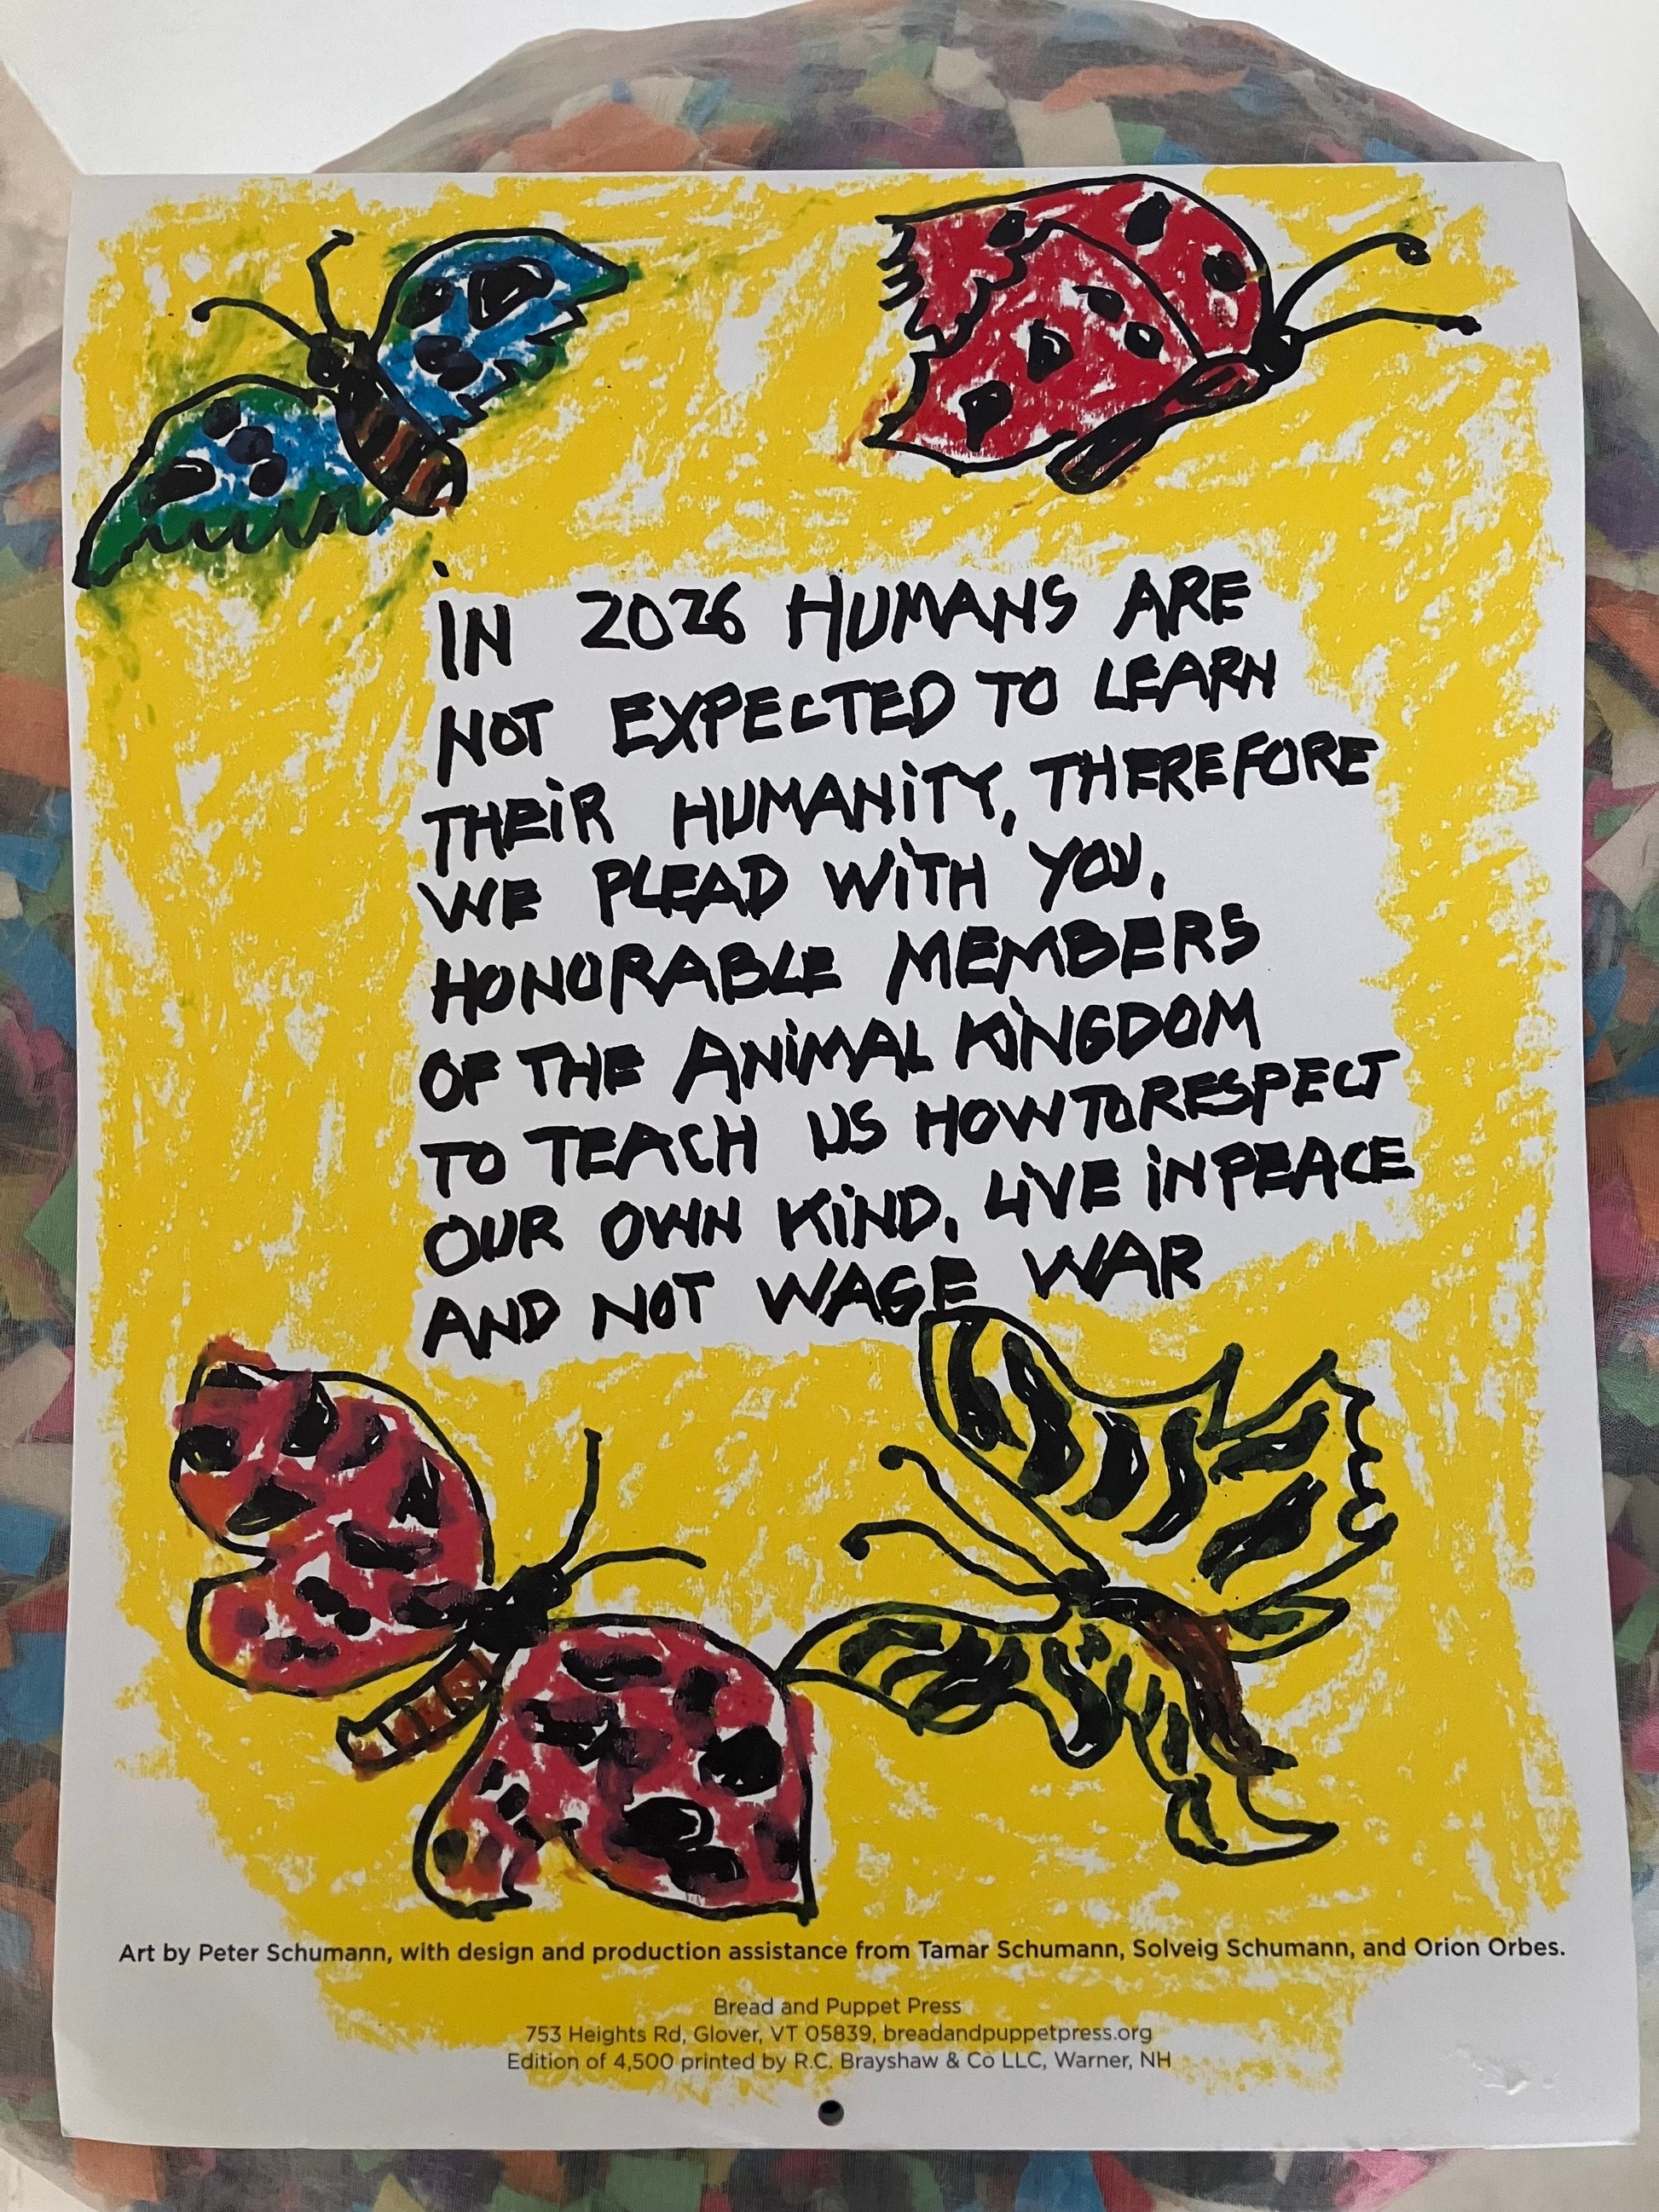 IN 2026 HUMANS ARE
NOT EXPECTED TO LEARN
THEiR HUMANiTY, THEREFORE
WE PLEAD WiTH YOU,
HONORABLE MEMBERS
OF THE ANiMAL KiNGDOM
TO TEACH US HOW TO RESPECT
OUR OWN KiND, LiVE iN PEACE
AND NOT WAGE WAR
Art by Peter Schumann, with design and production assistance from Tamar Schumann, Solveig Schumann, and Orion Orbes.
Bread and Puppet Press
753 Heights Rd, Glover, VT 05839, breadandpuppetpress.org
Edition of 4,500 printed by R.C. Brayshaw & Co LLC, Warner, NH